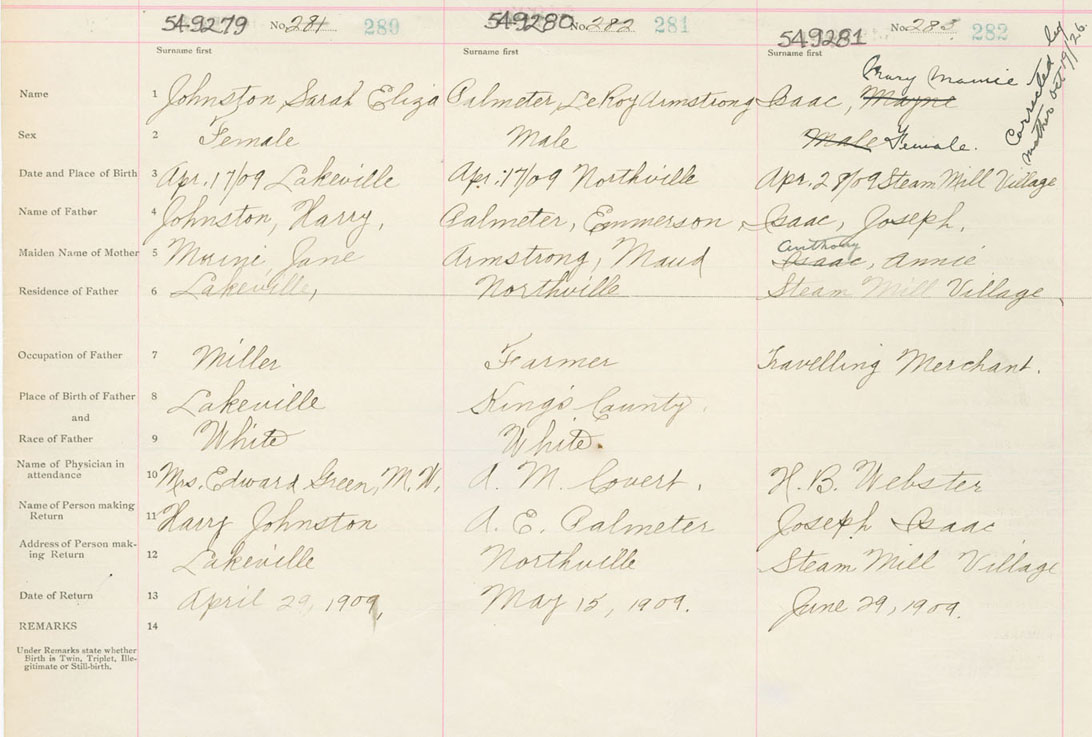 549279 No. 281 280 549280 No. 282 281 549281 No. 283 282
Surname first Surname first Surname first
Corrected by mother Oct 19/26
Mary Mamie
Name 1 Johnston Sarah Eliza Palmeter, LeRoy Armstrong Isaac, Mayne
Sex 2 Female Male Male Female.
Date and Place of Birth 3 Apr. 17/09 Lakeville Apr. 17/09 Northville Apr. 28/09 Steam Mill Village
Name of Father 4 Johnston, Harry, Palmeter, Emmerson Isaac, Joseph,
Anthony
Maiden Name of Mother 5 Jane Armstrong, Maud Isaac, Annie
Residence of Father 6 Lakeville, Northville Steam Mill Village,
Occupation of Father 7 Miller Farmer Travelling Merchant.
Place of Birth of Father 8 Lakeville Kings County.
and
Race of Father 9 White White.
Name of Physician in
attendance 10 Mrs. Edward Green, M.W. A. M. Covert. H. B. Webster
Name of Person making
Return 11 Harry Johnston A. E. Palmeter Joseph Isaac
Address of Person mak-
ing Return 12 Lakeville Northville Steam Mill Village
Date of Return 13 April 29, 1909, May 15, 1909. June 29, 1909.
REMARKS 14
Under Remarks state whether
Birth is Twin, Triplet, Ille-
gitimate or Still-birth.